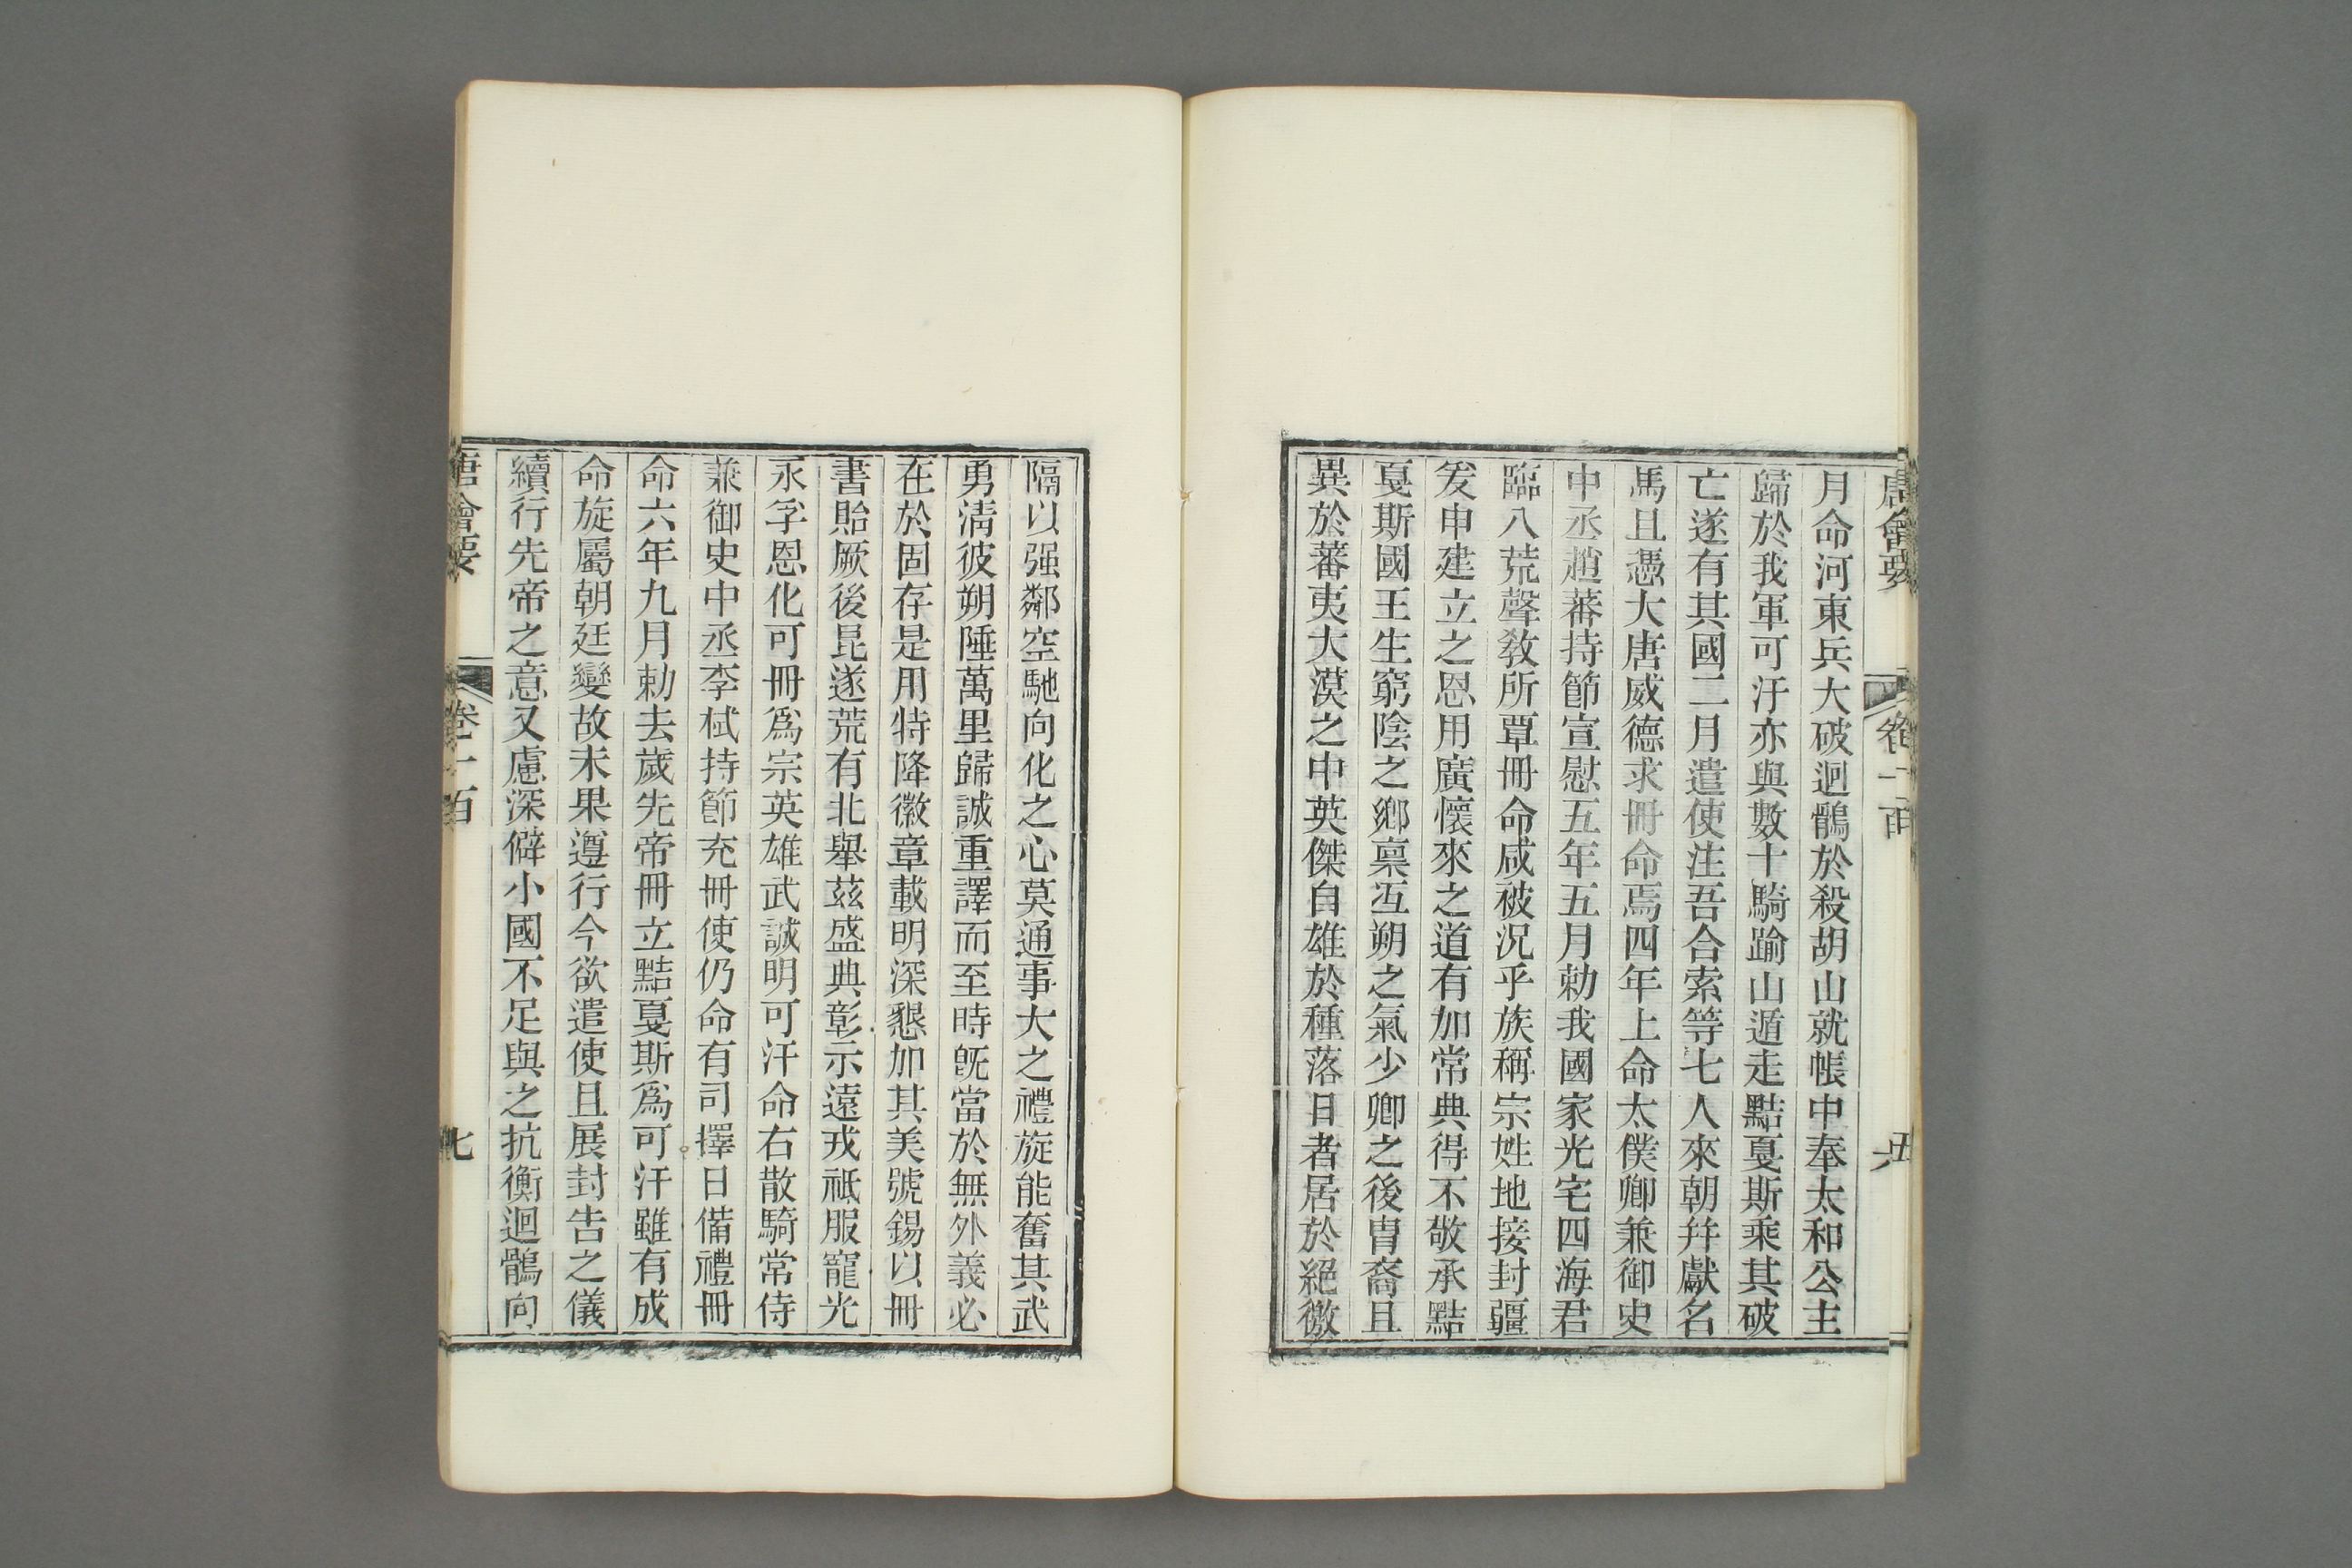 唐會要 卷一百 六
月命河東兵大破迴鶻於殺胡山就帳中奉太和公主
歸於我軍可汗亦與數十騎踰山遁走黠戛斯乘其破
亡遂有其國二月遣使注吾合索等七人來朝幷獻名
馬且憑大唐威德求冊命焉四年上命太僕卿兼御史
中丞趙蕃持節宣慰五年五月勅我國家光宅四海君
臨八荒聲敎所覃冊命咸被況乎族稱宗姓地接封疆
爰申建立之恩用廣懷來之道有加常典得不敬承黠
戛斯國王生窮陰之鄉稟沍朔之氣少卿之後冑裔且
異於蕃夷大漠之中英傑自雄於種落日者居於絕徼
隔以强鄰空馳向化之心莫通事大之禮旋能奮其武
勇淸彼朔陲萬里歸誠重譯而至時旣當於無外義必
在於固存是用特降徽章載明深懇加其美號錫以冊
書貽厥後昆遂荒有北舉茲盛典彰示遠戎祗服寵光
永孚恩化可冊爲宗英雄武誠明可汗命右散騎常侍
兼御史中丞李栻持節充冊使仍命有司擇日備禮冊
命六年九月勅去歲先帝冊立黠戛斯爲可汗雖有成
命旋屬朝廷變故未果遵行今欲遣使且展封告之儀
續行先帝之意又慮深僻小國不足與之抗衡迴鶻向
唐會要 卷一百 七